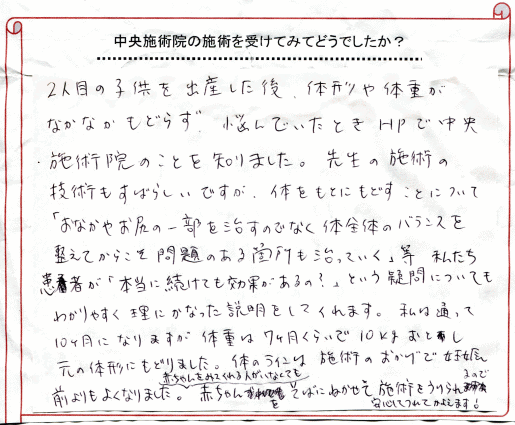 中央施術院の施術を受けてみてどうでしたか？
2人目の子供を出産した後、体形や体重が
なかなかもどらず、悩んでいたときHPで中央
施術院のことを知りました。先生の施術の
技術もすばらしいですが、体をもとにもどすことについて
「おなかやお尻の一部を治すのでなく体全体のバランスを
整えてからこそ問題のある箇所も治っていく」等 私たち
患者が「本当に続けても効果があるの？」という疑問についても
わかりやすく理にかなった説明をしてくれます。私は通って
10ヶ月になりますが体重は7ヶ月くらいで10kgおとし
元の体形にもどりました。体のラインは施術のおかげで妊娠
赤ちゃんをみてくれる人がいなくても
前よりもよくなりました。赤ちゃんをそばにねかせて施術をうけられるので
安心してつれてかよえます！